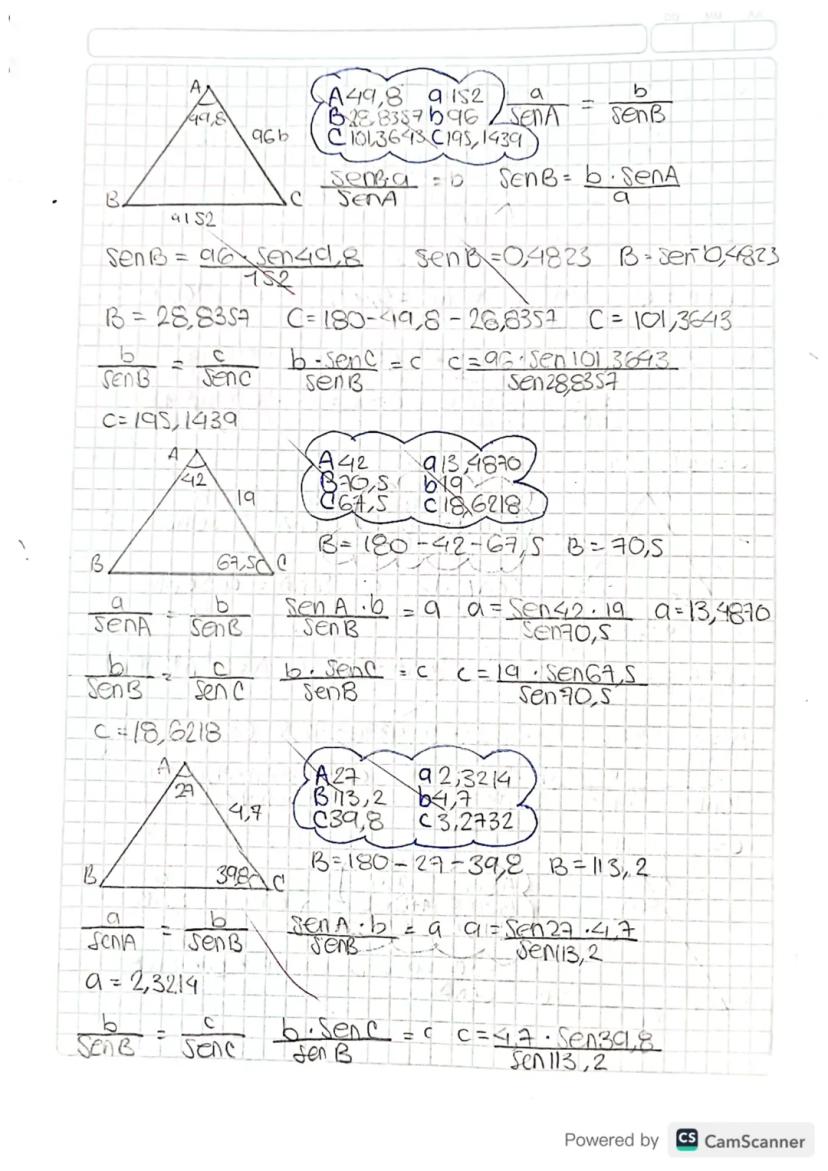 DD MM AA
A
49,8
96b
B
C
a152
A49,8 a152
B28,8357 b96
C101,3643 C195,1439
a/senA = b/senB
senB.a/senA = b senB = b · senA/a
senB = 96 · sen49,8/152 senB = 0,4823 B = sen⁻0,4823
B = 28,8357 C = 180 - 49,8 - 28,8357 C = 101,3643
b/senB = c/senC b · senC/senB = c c = 96 · sen101,3643/sen28,8357
C = 195,1439
A
42
19
B
67,5
C
A42 a13,4870
B70,5 b19
C67,5 c18,6218
B = 180 - 42 - 67,5 B = 70,5
a/senA = b/senB senA · b/senB = a a = sen42 · 19/sen70,5 a = 13,4870
b/senB = c/senC b · senC/senB = c c = 19 · sen67,5/sen70,5
C = 18,6218
A
27
4,7
B
39,8
C
A27 a2,3214
B113,2 b4,7
C39,8 c3,2732
B = 180 - 27 - 39,8 B = 113,2
a/senA = b/senB senA · b/senB = a a = sen27 · 4,7/sen113,2
a = 2,3214
b/senB = c/senC b · senC/senB = c c = 4,7 · sen39,8/sen113,2
Powered by CS CamScanner